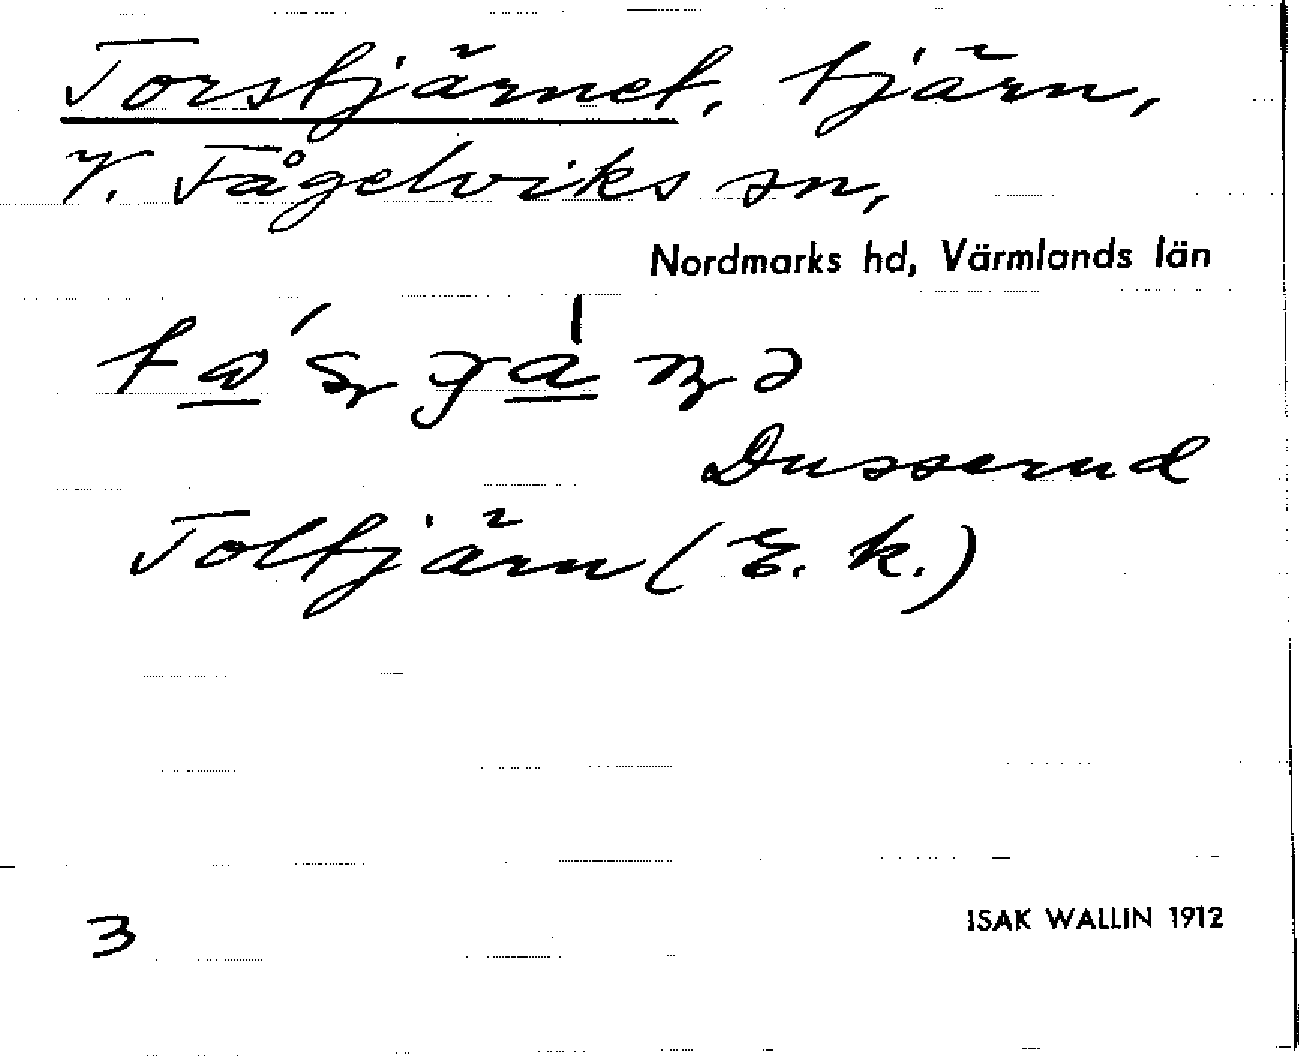 Torstjärnet, tjärn,
V. Fågelviks sn,
Nordmarks hd, Värmlands län
Dusserud
Toltjärn (E. k.)
3
ISAK WALLIN 1912